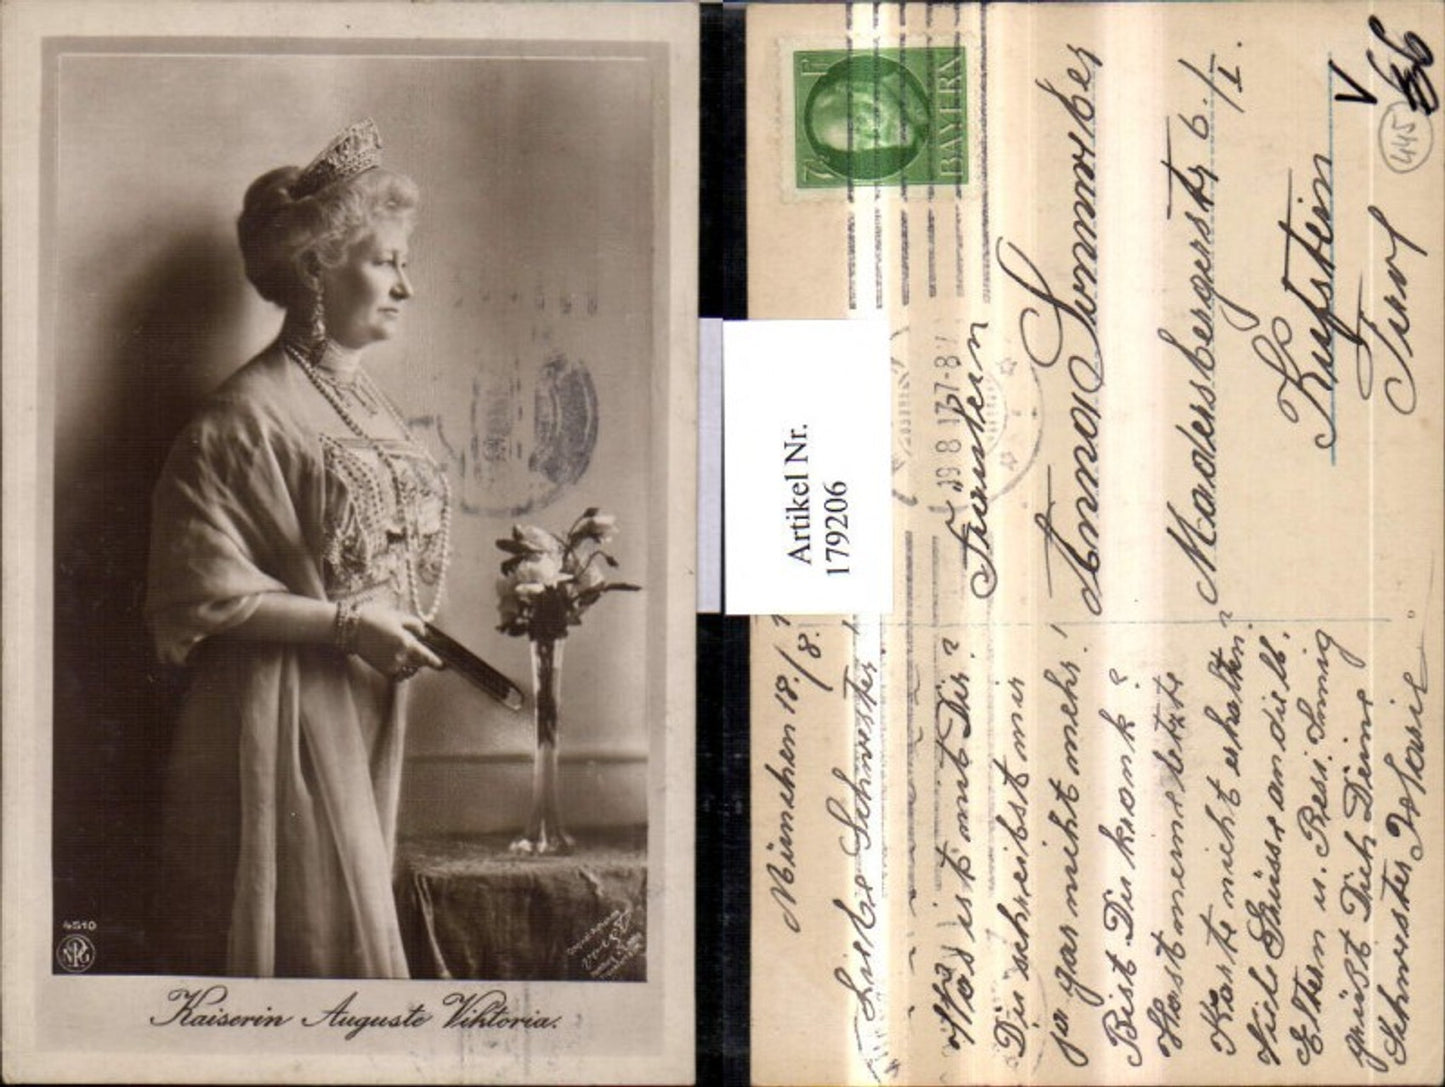 4510
NPG
Kaiserin Auguste Viktoria.
BAYERN
7½
PF
19 8 17 7-8
Artikel Nr.
179206
München 18./8.
Liebe Schwester!
Was ist mit Dir?
Du schreibst mir
ja gar nicht mehr!
Bist Du krank?
Hast meine letzte
Karte nicht erhalten?
Viele Grüsse an die lb.
Eltern u. Resi. Innig
grüßt Dich Deine
Schwester
Anna
Madersbergerstr 6./I.
Kufstein
Tirol
V
445